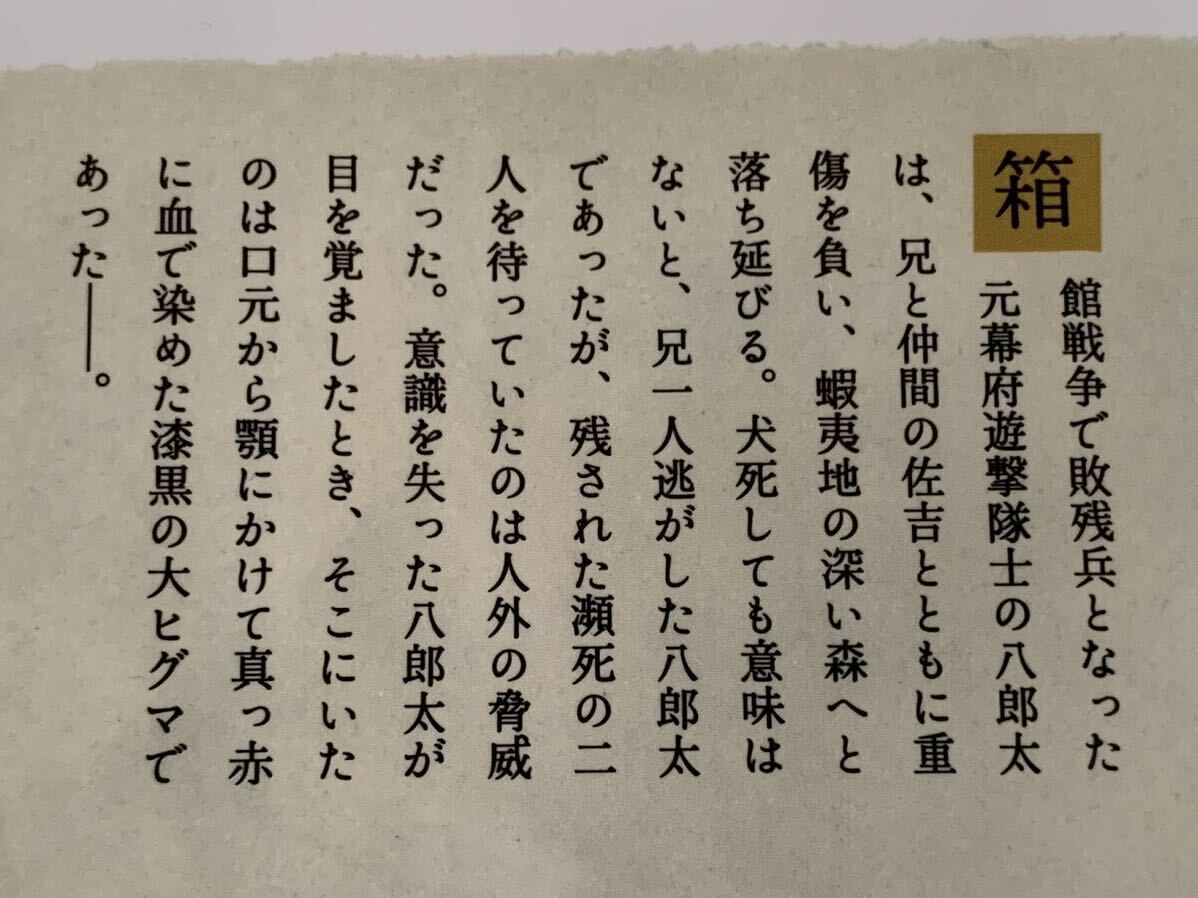 箱
館戦争で敗残兵となった
元幕府遊撃隊士の八郎太
は、兄と仲間の佐吉とともに重
傷を負い、蝦夷地の深い森へと
落ち延びる。犬死しても意味は
ないと、兄一人逃がした八郎太
であったが、残された瀕死の二
人を待っていたのは人外の脅威
だった。意識を失った八郎太が
目を覚ましたとき、そこにいた
のは口元から顎にかけて真っ赤
に血で染めた漆黒の大ヒグマで
あった――。